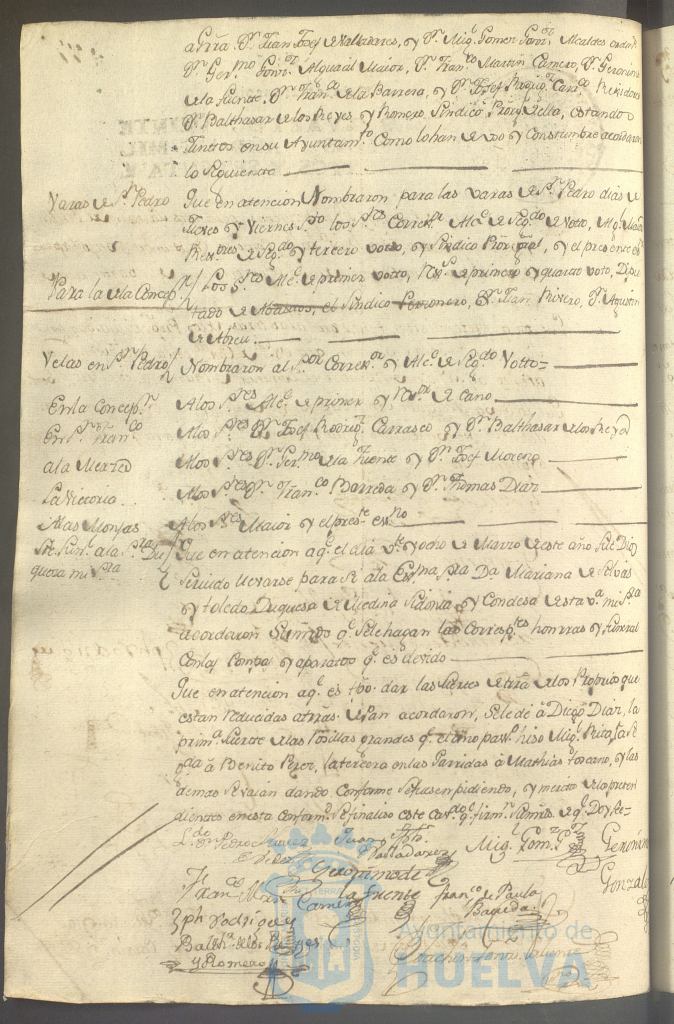 Juan Josef de Valladares, y Dn. Mig.l Gomez Gonz.z Alcaldes
Dn. Ger.mo Gonz.z Alguacil Maior, Dn. Fran.co Martin Camero, Dn. Geronimo
de la Fuente, Dn. Fran.co de la Barreda, y Dn. Josef Rodrig.z Carr.co Rexidores
Dn. Balthasar de los Reyes y Romero, Sindico estando
Juntos en su Ayuntam.to Como lo han de uso y Constumbre acordaron
lo Siguiente
Varas de Sn. Pedro Que en atencion Nombraron para las varas de Sn. Pedro dias de
Jueves y Viernes S.to los S.res Corre.or Alc.e de Seg.do de Votto,
de Seg.do y tercero votto, y Sindico y el presente
Para la de la Concep.n Los S.res Alc.e de primer votto, de primero y quarto voto, Dipu
tado de Abastos, el Sindico Personero, Dn. Juan Rivero, Dn. Agustin
de Abreu
Velas en Sn. Pedro Nombraron al S.or Corre.or y Alc.e de Seg.do Votto=
En la Concepz.n A los S.res Alc.e de primer y de Cano
En Sn. Fran.co A los S.res Dn. Josef Rodrig.z Carrasco y Dn. Balthasar de los Reyes
a la Merzed A los S.res Dn. Ger.mo de la Fuente y Dn. Josef Moreno
La Victoria A los S.res Dn. Fran.co Barreda y Dn. Thomas Diaz
A las Monjas A los S.res Maior y el pres.te es.no
a la S.ra Du Que en atencion a q.e el dia v.te y ocho de Marzo de este año fue Dios
quesa mi S.ra Servido llevarse para Sí a la Ex.ma S.ra D.a Mariana de Silva
y toledo Duquesa de Medina Sidonia y Condesa de esta V.a mi S.ra
acordaron Sus m.des q.e se le hagan las Corresp.tes honrras y funeral
Con las Pompas y aparatos q.e es devido
Que en atencion a q.e es tpo. dar las Suertes de trra de los Proprios que
estan reducidas a trras de Pan acordaron, se le dé á Diego Diaz, la
prim.a Suerte de las Posillas grandes q.e el año pas.do hiso Mig.l la
á Benito Perez, la tercera en las Partidas á Mathias toscano, y las
demas se vaian dando Conforme se fuesen pidiendo, y merito de los preten
dientes en esta Conform.d se finaliso este cav.do q.e firm.n Sus m.des de q.e Doy fee-
L.do Dn. Pedro Juan Jph. Valladares Mig.l Gom.z Geronimo
Geronimo de la Fuente Gonzalez
Fran.co Mar.n Camero Fran.co de Paula Barreda
Jph Rodriguez
Balth.r de los Reyes
y Romero Joachin
Ayuntamiento de
HUELVA